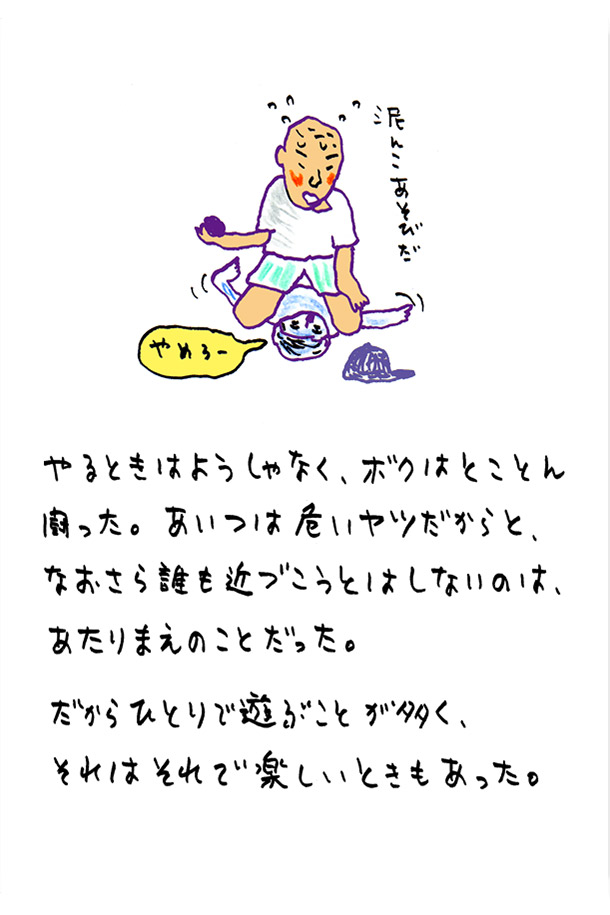 泥んこあそびだ
やめろー
やるときはようしゃなく、ボクはとことん
闘った。あいつは危いヤツだからと、
なおさら誰も近づこうとはしないのは、
あたりまえのことだった。
だからひとりで遊ぶことが多く、
それはそれで楽しいときもあった。